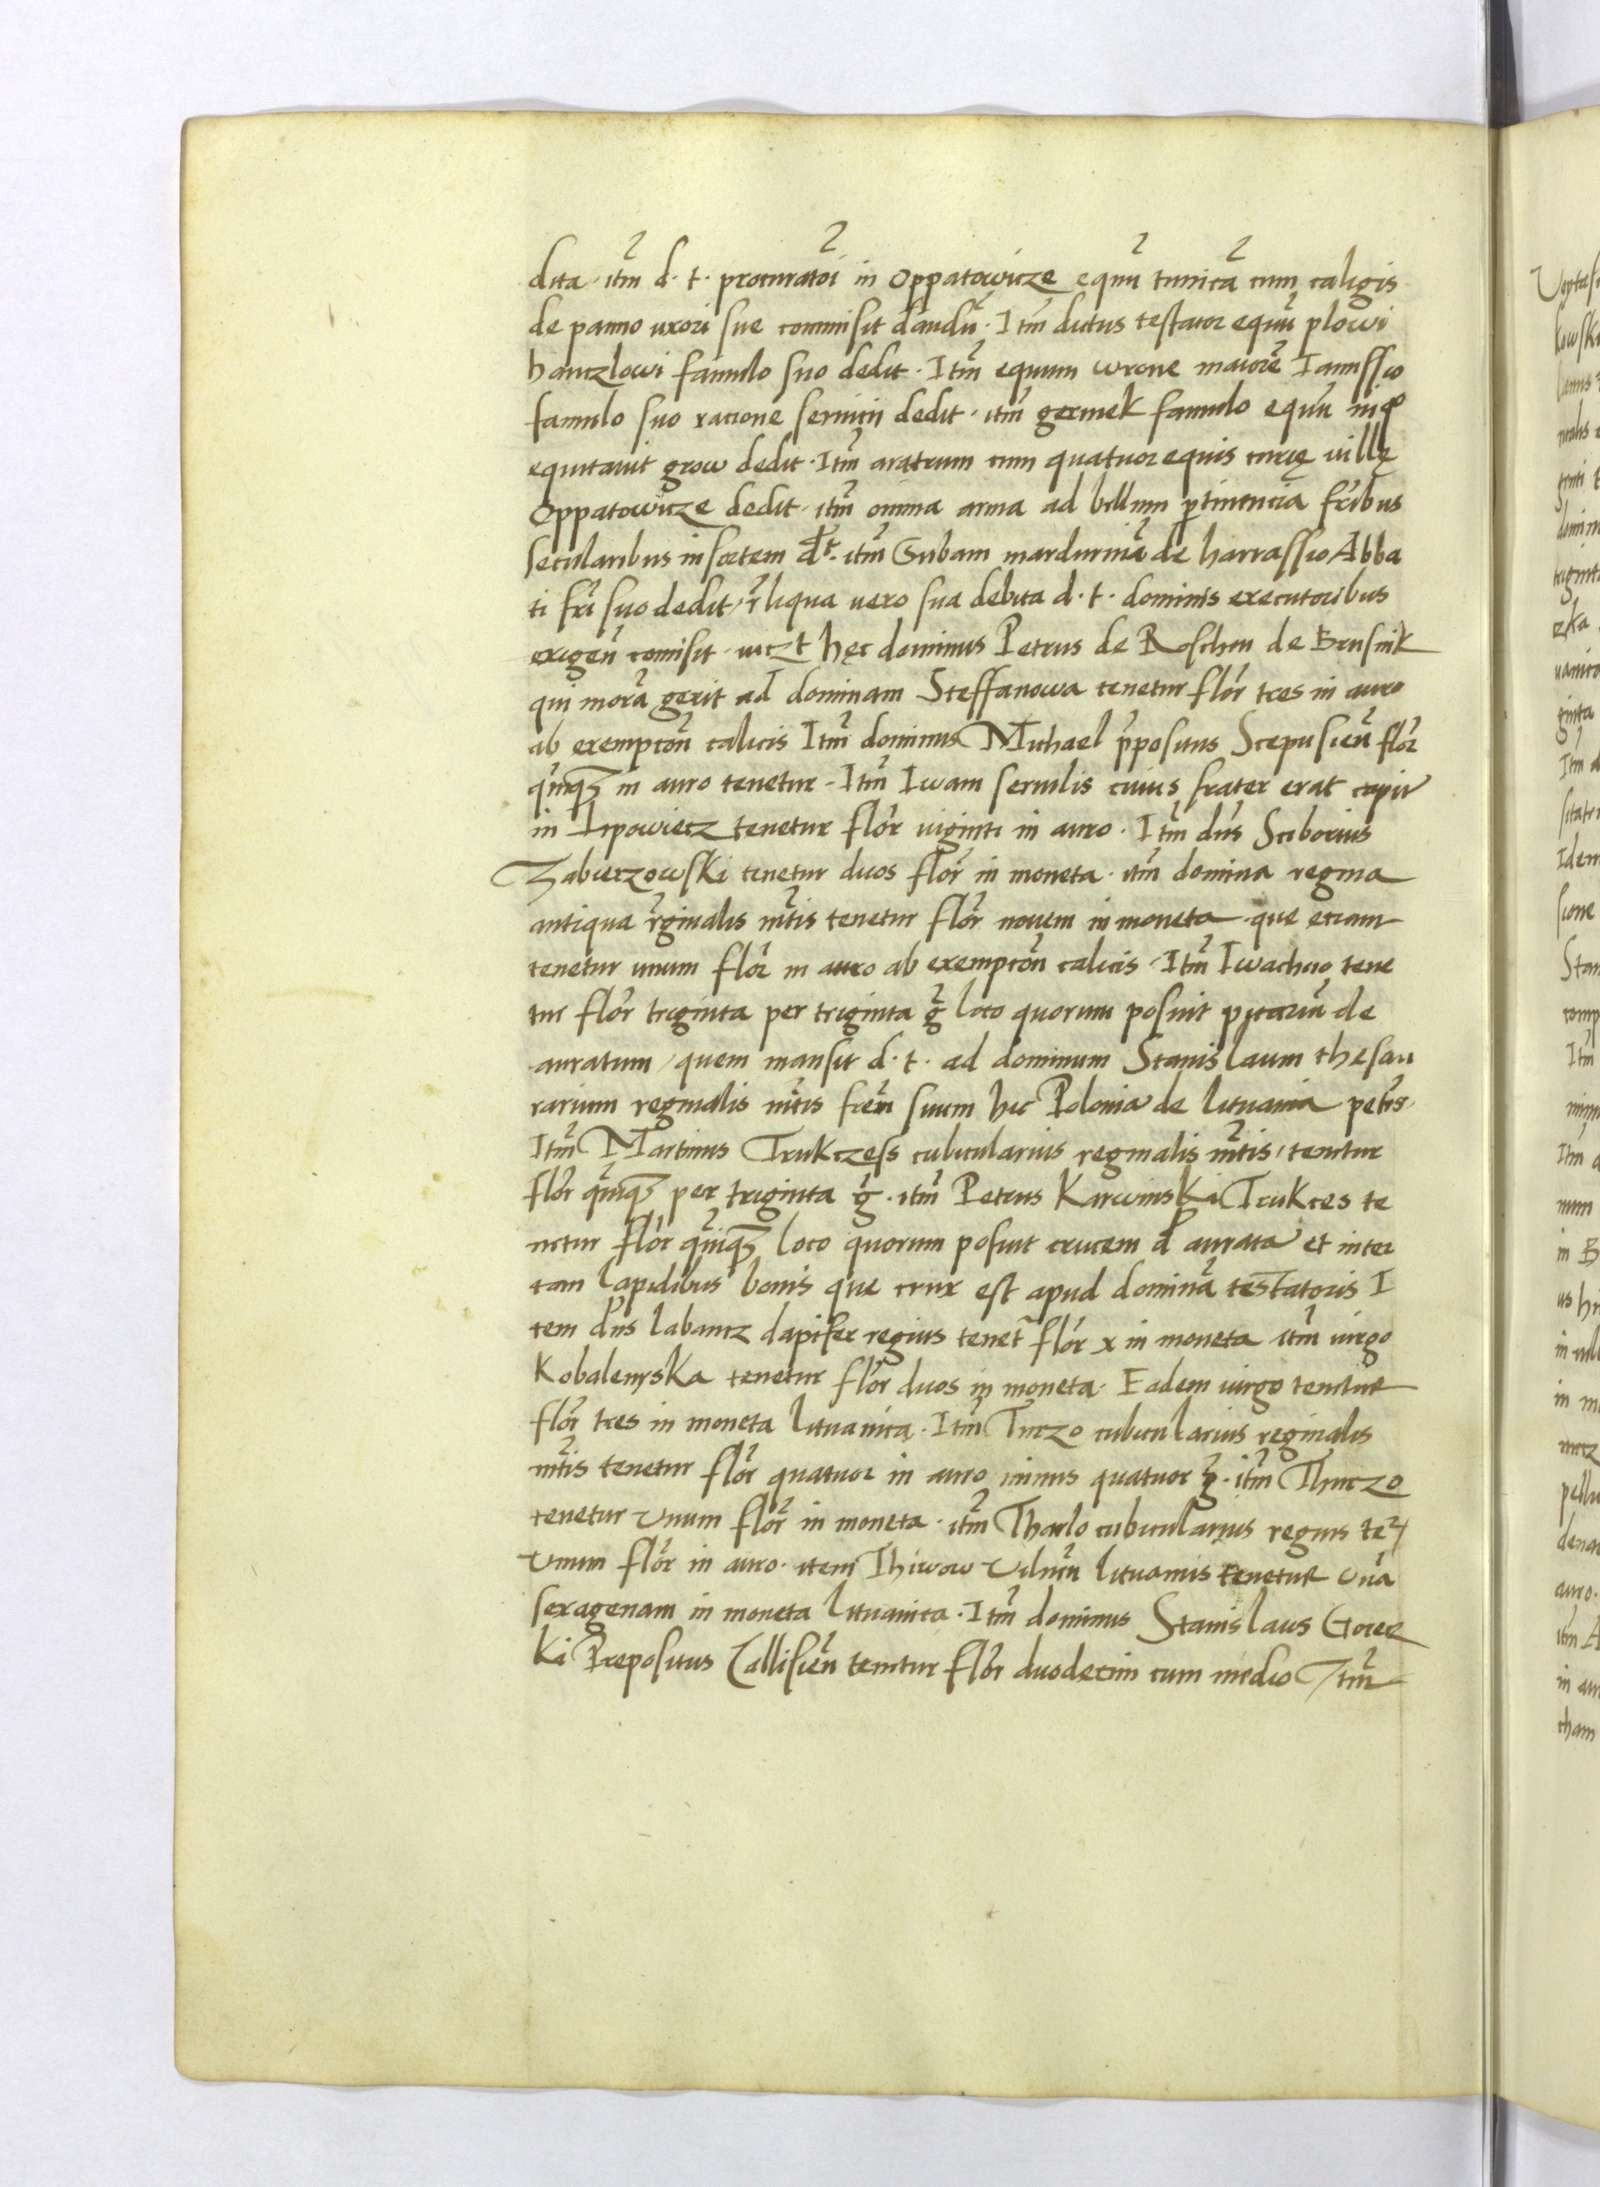 dita · itm̄ d · t · procuratoī in Oppatowicze equū tunicā cum caligis
de panno uxori sue commisit dandū · Itm̄ dictus testator equū plowi
hanczlowi famulo suo dedit · Itm̄ equum wrone maiorē Ianussio
famulo suo racione seruicij dedit · itm̄ germek famulo equū in qo
equitauit grow dedit · Itm̄ aratrum cum quatuor equis curię villę
Oppatowicze dedit · itm̄ omnia arma ad bellum ptinencia fribus
secularibus in sortem dt · itm̄ Subam mardurinā de harrassio Abba
ti fri suo dedit / rliqua uero sua debita d · t · dominis executoribus
exigen̄ comisit · uiczt hęc dominus Petrus de
qui morā gerit ad dominam Steffanowa tenetur flor̄ tres in auro
ab exempcōn calicis Itm̄ dominus Michael pposutus Scepusien̄ flor̄
quīq in auro tenetur · Itm̄ Iwam seruilis cuius frater erat capit
in Lipowiecz tenetur flor̄ uiginti in auro · Itm̄ dn̄s Sciborius
Zabierzowski tenetur duos flor̄ in moneta · itm̄ domina regina
antiqua rginalis mtis tenetur flor̄ nouem in moneta que etiam
tenetur unum flor̄ in auro ab exempcōn calicis · Itm̄ Iwachno tene
tur flor̄ triginta per triginta g̃ loco quorum posuit picariū de
auratum / quem mansit d · t · ad dominum Stanislaum thesau
rarium reginalis mtis frem suum hic Polonia de lituania
Itm̄ Martinus Trukczess cubicularius reginalis mtis / tenetur
flor̄ quīq per triginta g̃ · itm̄ Petrus Karwinska Trukces te
netur flor̄ quīq loco quorum posuit crucem d aurata et inter
tam lapidibus bonis que crux est apud dominā testatoris I
tem dn̄s labancz dapifer regius tenet flor̄ x in moneta itm̄ uirgo
Kobalenyska tenetur flor̄ duos in moneta · Eadem uirgo tenetur
flor̄ tres in moneta lituanica · Itm̄ Turzo cubicularius reginalis
mtis tenetur flor̄ quatuor in auro minus quatuor g̃ · itm̄ Thurzo
tenetur Unum flor̄ in moneta · itm̄ Tharlo cubicularius regius te
Unum flor̄ in auro · item Thiwow Vilnen̄ lituanus tenetur Unā
sexagenam in moneta lituanica · Itm̄ dominus Stanislaus Gorez
ki Prepositus Callisien̄ tenetur flor̄ duodecim cum medio Itm̄